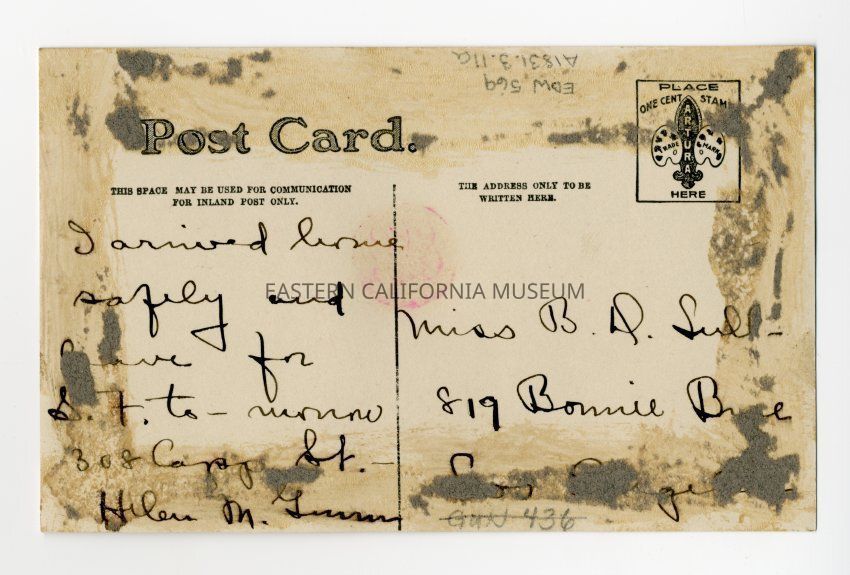 EDW 569
A1831.3.11a
PLACE
ONE CENT STAM
ARTURA
TRADE MARK
HERE
Post Card.
THIS SPACE MAY BE USED FOR COMMUNICATION
FOR INLAND POST ONLY.
THE ADDRESS ONLY TO BE
WRITTEN HERE.
I arrived home
safely and
leave for
S. F. to-morrow
308 Capp St. -
Helen M. Gunn
EASTERN CALIFORNIA MUSEUM
Miss B. D.
819 Bonnie Brae
Los Angeles
GUN 436